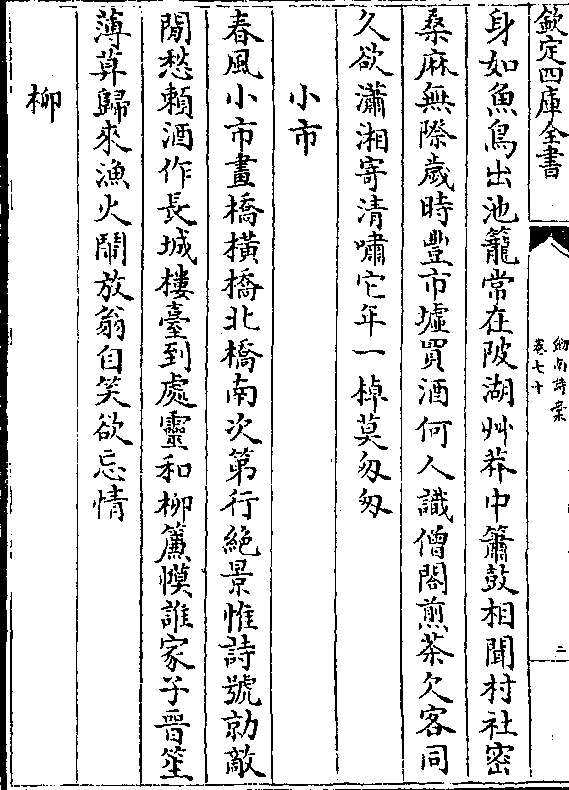 欽定四庫全書
劒南詩稾
卷七十
三
身如魚鳥出池籠常在陂湖艸莽中簫鼓相聞村社密
桑麻無際歲時豐市墟買酒何人識僧閣煎茶欠客同
久欲瀟湘寄清嘯它年一棹莫匆匆
小市
春風小市畫橋横橋北橋南次第行絶景惟詩號勍敵
閒愁賴酒作長城樓臺到處靈和柳簾幙誰家子晉笙
薄莫歸來漁火鬧放翁自笑欲忘情
柳